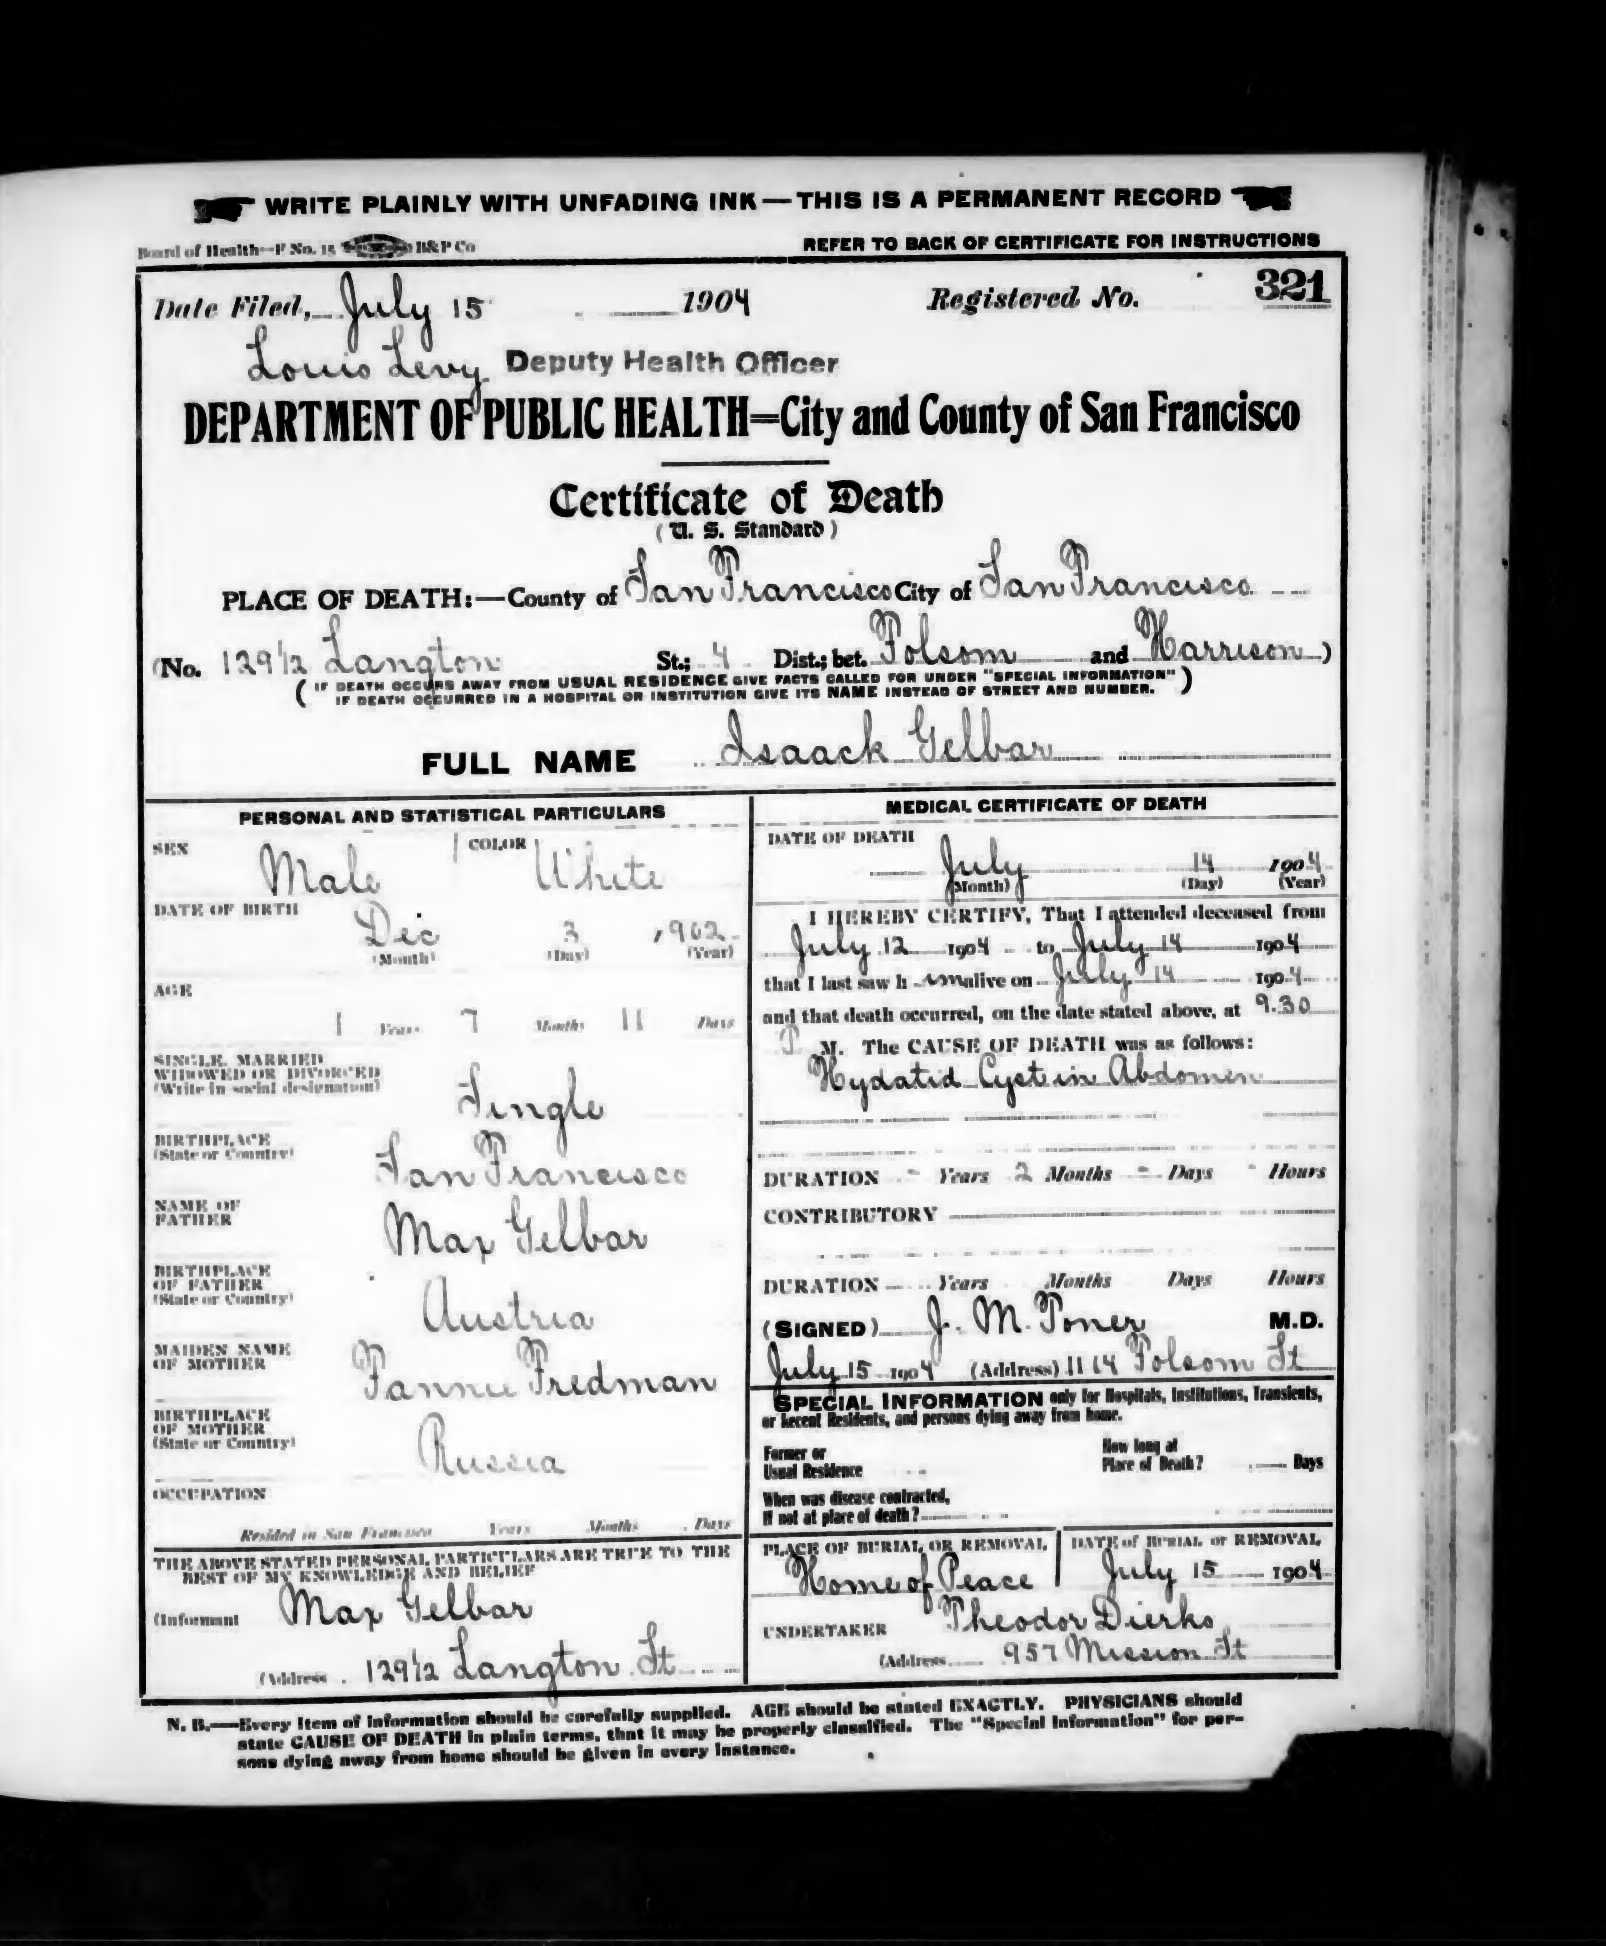 WRITE PLAINLY WITH UNFADING INK—THIS IS A PERMANENT RECORD
Board of Health—F No. 15 B&P Co
REFER TO BACK OF CERTIFICATE FOR INSTRUCTIONS
Date Filed, July 15 1904 Registered No. 321
Louis Levy Deputy Health Officer
DEPARTMENT OF PUBLIC HEALTH=City and County of San Francisco
Certificate of Death
(U. S. Standard)
PLACE OF DEATH:—County of San Francisco City of San Francisco
(No. 129 1/2 Langton St.; 4 Dist.; bet. Folsom and Harrison)
(IF DEATH OCCURS AWAY FROM USUAL RESIDENCE GIVE FACTS CALLED FOR UNDER "SPECIAL INFORMATION"
IF DEATH OCCURRED IN A HOSPITAL OR INSTITUTION GIVE ITS NAME INSTEAD OF STREET AND NUMBER.)
FULL NAME Isaack Gelbar
PERSONAL AND STATISTICAL PARTICULARS
SEX Male COLOR White
DATE OF BIRTH
Dec 3 1902
(Month) (Day) (Year)
AGE
1 Years 7 Months 11 Days
SINGLE, MARRIED
WIDOWED OR DIVORCED
(Write in social designation)
Single
BIRTHPLACE
(State or Country)
San Francisco
NAME OF
FATHER
Max Gelbar
BIRTHPLACE
OF FATHER
(State or Country)
Austria
MAIDEN NAME
OF MOTHER
Fannie Fredman
BIRTHPLACE
OF MOTHER
(State or Country)
Russia
OCCUPATION
Resided in San Francisco Years Months Days
THE ABOVE STATED PERSONAL PARTICULARS ARE TRUE TO THE
BEST OF MY KNOWLEDGE AND BELIEF
(Informant Max Gelbar
(Address 129 1/2 Langton St
MEDICAL CERTIFICATE OF DEATH
DATE OF DEATH
July 14 1904
(Month) (Day) (Year)
I HEREBY CERTIFY, That I attended deceased from
July 12 1904 to July 14 1904
that I last saw him alive on July 14 1904
and that death occurred, on the date stated above, at 9.30
P M. The CAUSE OF DEATH was as follows:
Hydatid Cyst in Abdomen
DURATION - Years 2 Months - Days - Hours
CONTRIBUTORY
DURATION Years Months Days Hours
(SIGNED) J. M. Toner M.D.
July 15 1904 (Address) 1114 Folsom St
SPECIAL INFORMATION only for Hospitals, Institutions, Transients,
or Recent Residents, and persons dying away from home.
Former or
Usual Residence
How long at
Place of Death? Days
When was disease contracted,
If not at place of death?
PLACE OF BURIAL OR REMOVAL
Home of Peace
DATE of BURIAL or REMOVAL
July 15 1904
UNDERTAKER Theodor Dierks
(Address 957 Mission St
N. B.—Every item of information should be carefully supplied. AGE should be stated EXACTLY. PHYSICIANS should
state CAUSE OF DEATH in plain terms, that it may be properly classified. The "Special Information" for per-
sons dying away from home should be given in every instance.